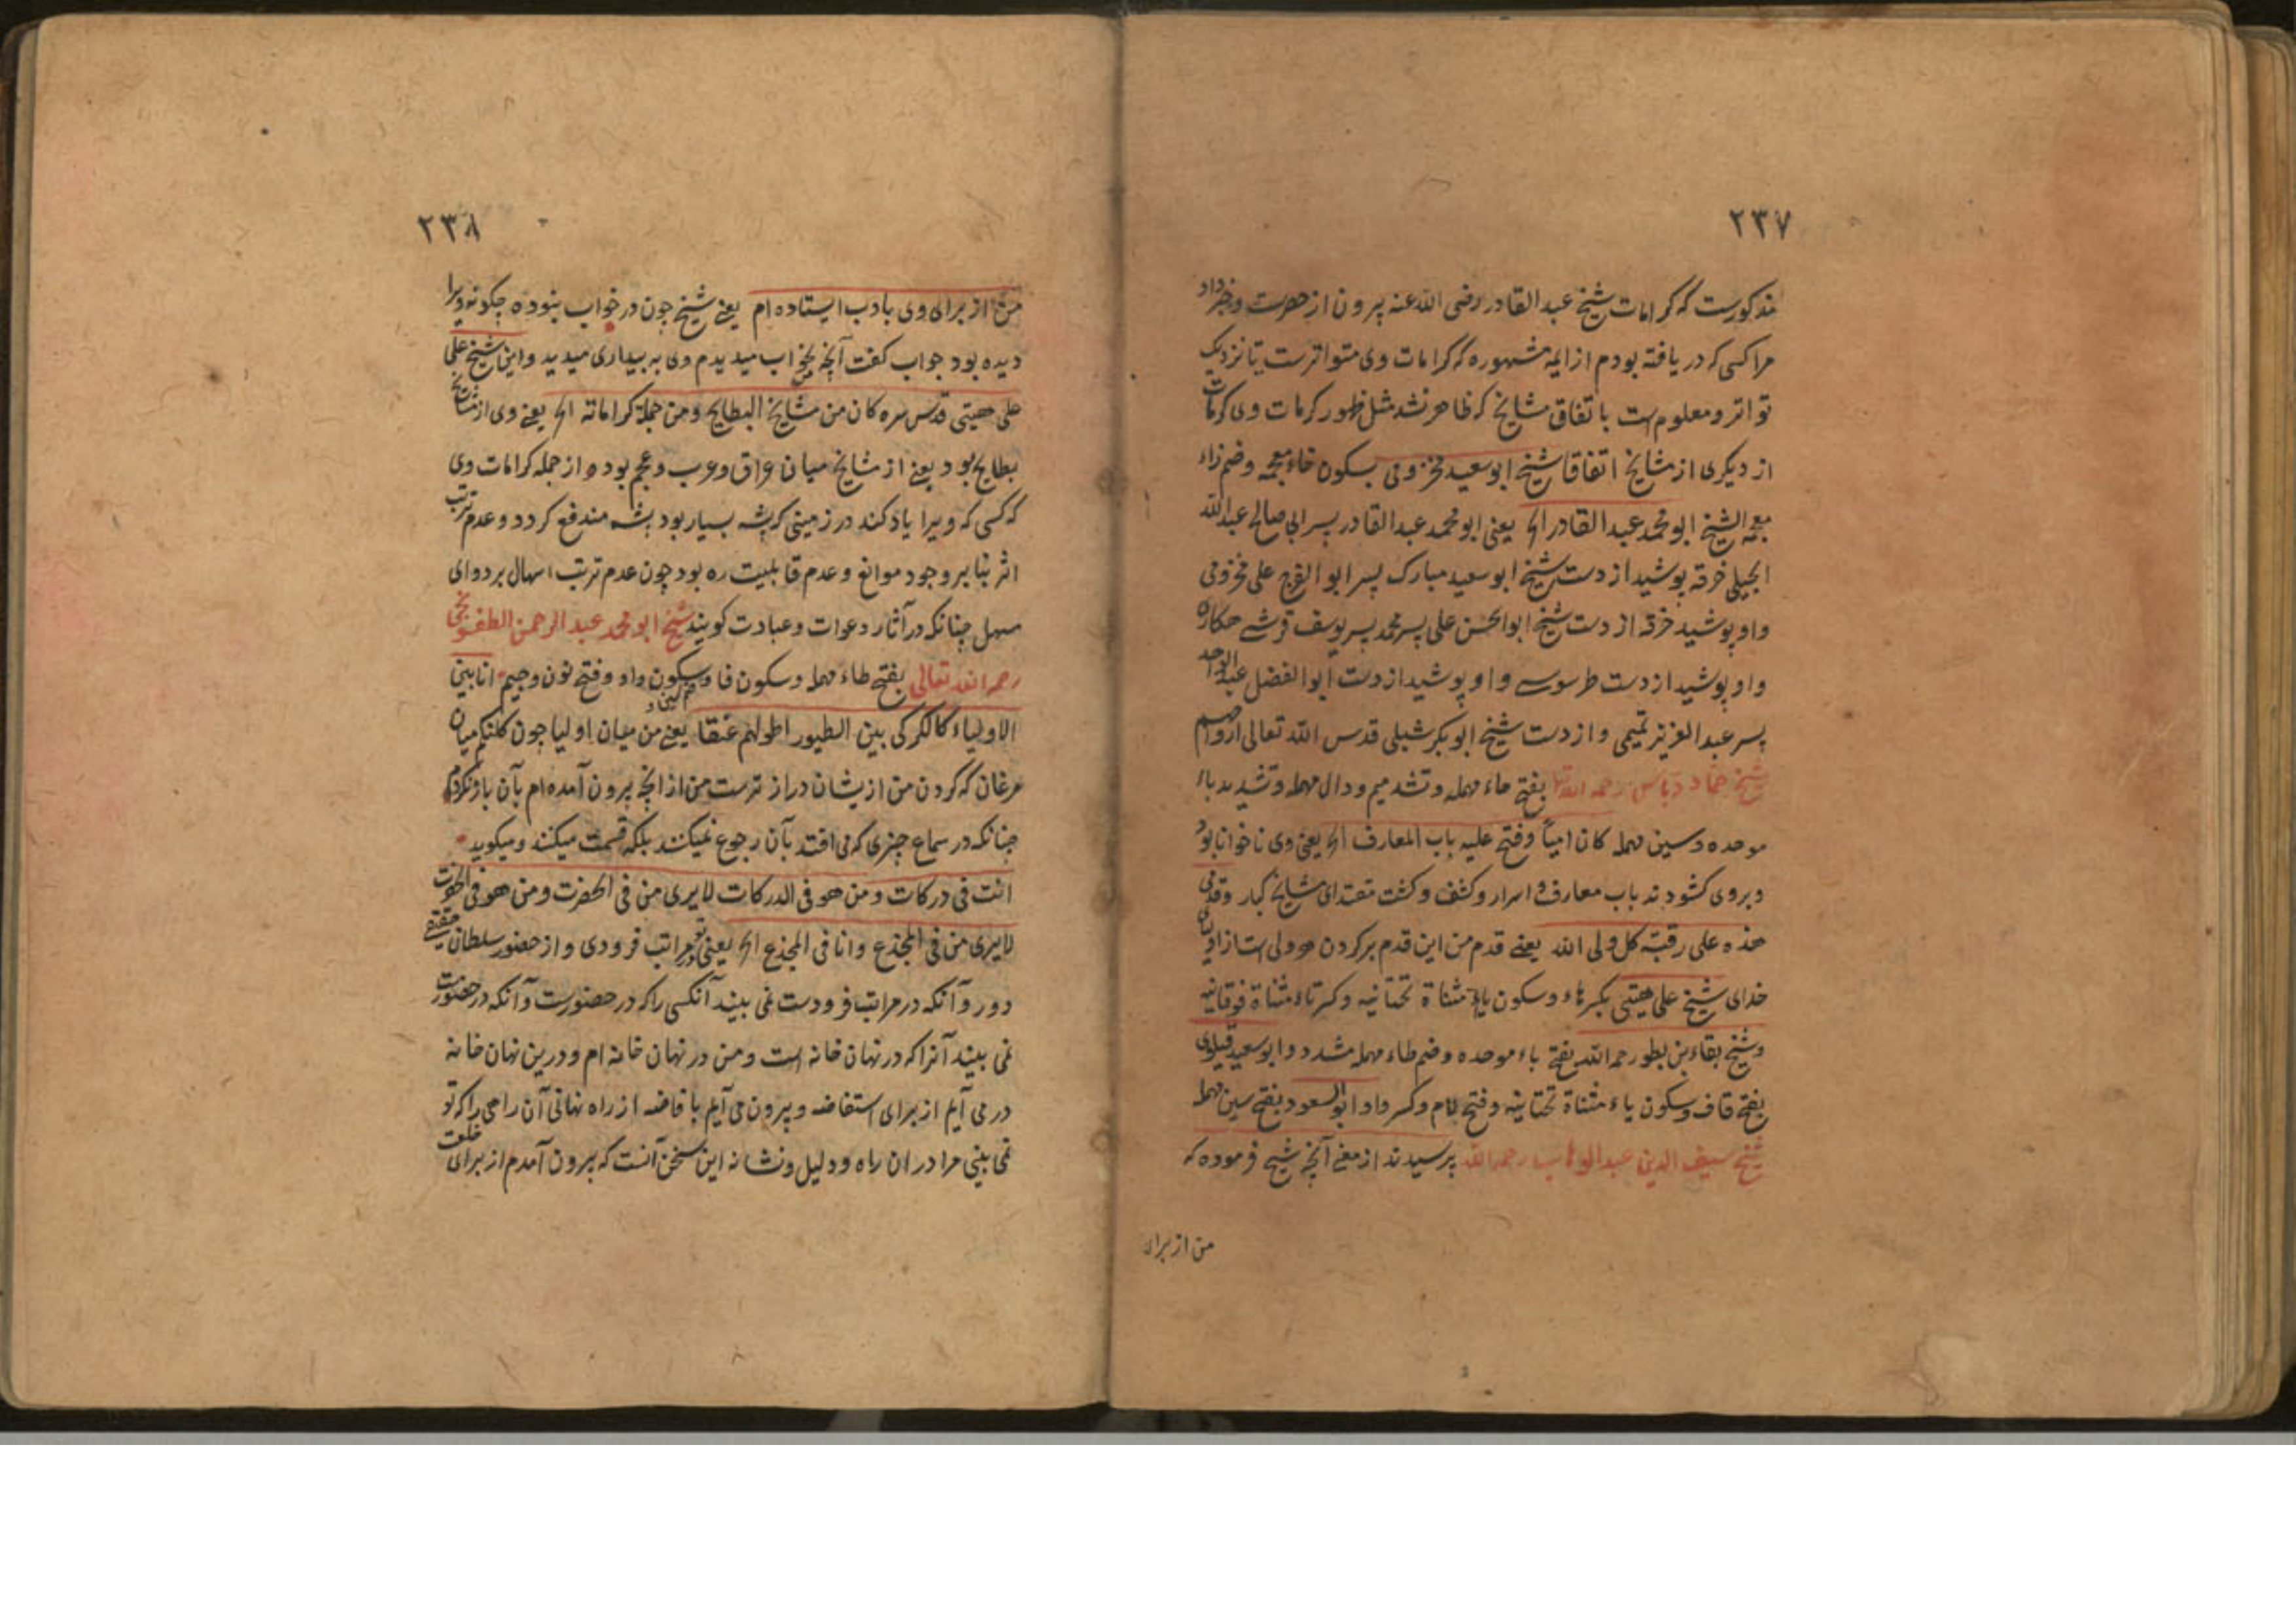 ۲۳۷
مذکورست که کرامات شیخ عبد القادر رضی الله عنه بیرون از حصرست وخبر داد
مرا کسی که دریافته بودم از ایمه مشهوره که کرامات وی متواترست یا نزدیک
تواتر و معلوم است باتفاق مشایخ که ظاهر نشد مثل ظهور کرمات وی کرمات
از دیکری از مشایخ اتفاقا شیخ ابو سعید مخزومی بسکون خاء معجمه وضم زاء
معجمه الشیخ ابو محمد عبد القادر الخ یعنی ابو محمد عبد القادر پسر ابی صالح عبد الله
الجیلی خرقه پوشید از دست شیخ ابو سعید مبارک پسر ابو الفرج علی مخزومی
واو پوشید خرقه از دست شیخ ابو الحسن علی پسر محمد پسر یوسف قرشی هکاره
واو پوشید از دست طرسوسی واو پوشید از دست ابوا الفضل عبد الواحد
پسر عبد العزیز تمیمی واز دست شیخ ابو بکر شبلی قدس الله تعالی ارواحهم
شیخ حماد دباس رحمه الله تعا بفتح حاء مهمله وتشد میم ودال مهمله وتشدید باء
موحده وسین مهمله کان امیاً وفتح علیه باب المعارف الخ یعنی وی ناخوانا بود
وبروی کشودند باب معارف و اسرار وکشف وکشت مقتدای مشایخ کبار وقدمی
هذه علی رقبة کل ولی الله یعنی قدم من این قدم بر کردن هر ولی است از اولیای
خدای شیخ علی هیتی بکسر هاء وسکون یاء مثناة تحتانیه وکسر تاء مثناة فوقانیه
وشیخ بقاء بن بطو رحمه الله بفتح باء موحده وضم طاء مهمله مشدد وابو سعید قیلوی
بفتح قاف وسکون یاء مثناة تحتانیه وفتح لام وکسر واو ابو السعود بفتح سین مهمله
شیخ سیف الدین عبد الوهاب رحمه الله پرسیدند از معنی آنچه شیخ فرموده که
من از برای
۲۳۸
من از برای وی بادب ایستاده ام یعنی شیخ چون در خواب بنوده چکونه ویرا
دیده بود جواب کفت آنچه بخواب میدیدم وی به بیداری میدید واین شیخ علی
علی هیتی قدس سره کان من مشایخ البطایح ومن جملة کراماته الخ یعنی وی از مشایخ
بطایح بود یعنی از مشایخ میان عراق وعرب وعجم بوده واز جمله کرامات وی
که کسی که ویرا یاد کند در زمینی که پشه بسیار بود پشه مندفع کردد وعدم ترتب
اثر بنابر وجود موانع وعدم قابلیت ره بود چون عدم ترتب اسهال بر دوای
مسهل چنانکه در آثار دعوات وعبادت کویند شیخ ابو محمد عبد الرحمن الطفسونجی
رحمه الله تعالی بفتح طاء مهمله وسکون فا وسکون واو وفتح نون وجیم انا بین
الاولیاء کالکرکی بین الطیور اطولهم عنقا یعنی من میان اولیا چون کلنکم میان
مرغان که کردن من ازیشان دراز ترست من از انچه بیرون آمده ام بآن باز نکردم
چنانکه در سماع چیزی که می افتد بآن رجوع نمیکنند بلکه قسمت میکنند ومیکوید
انت فی درکات ومن هو فی الدرکات لایری من فی الحضرت ومن هو فی الحضرت
لایری من فی المخدع وانا فی المخدع الخ یعنی تو در مراتب فرودی واز حضور سلطان حقیقی
دور وآنکه در مراتب فرودست نمی بیند آنکسی را که در حضورست وآنکه در حضورست
نمی بیند آنرا که در نهان خانه است ومن در نهان خانه ام ودرین نهان خانه
در می آیم از برای استفاضه وبیرون می آیم بافاضه از راه نهانی آن راهی را که تو
نمی بینی مرا در ان راه ودلیل ونشانه این سخن آنست که بیرون آمدم از برای خلعت